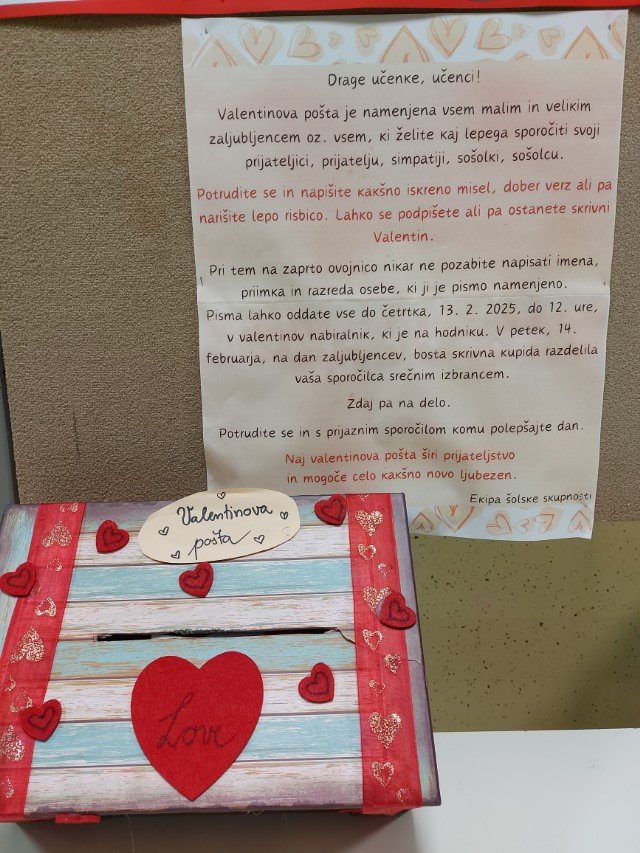 Drage učenke, učenci!
Valentinova pošta je namenjena vsem malim in velikim
zaljubljencem oz. vsem, ki želite kaj lepega sporočiti svoji
prijateljici, prijatelju, simpatiji, sošolki, sošolcu.
Potrudite se in napišite kakšno iskreno misel, dober verz ali pa
narišite lepo risbico. Lahko se podpišete ali pa ostanete skrivni
Valentin.
Pri tem na zaprto ovojnico nikar ne pozabite napisati imena,
priimka in razreda osebe, ki ji je pismo namenjeno.
Pisma lahko oddate vse do četrtka, 13. 2. 2025, do 12. ure,
v valentinov nabiralnik, ki je na hodniku. V petek, 14.
februarja, na dan zaljubljencev, bosta skrivna kupida razdelila
vaša sporočilca srečnim izbrancem.
Zdaj pa na delo.
Potrudite se in s prijaznim sporočilom komu polepšajte dan.
Naj valentinova pošta širi prijateljstvo
in mogoče celo kakšno novo ljubezen.
Ekipa šolske skupnosti
Valentinova
pošta
Love